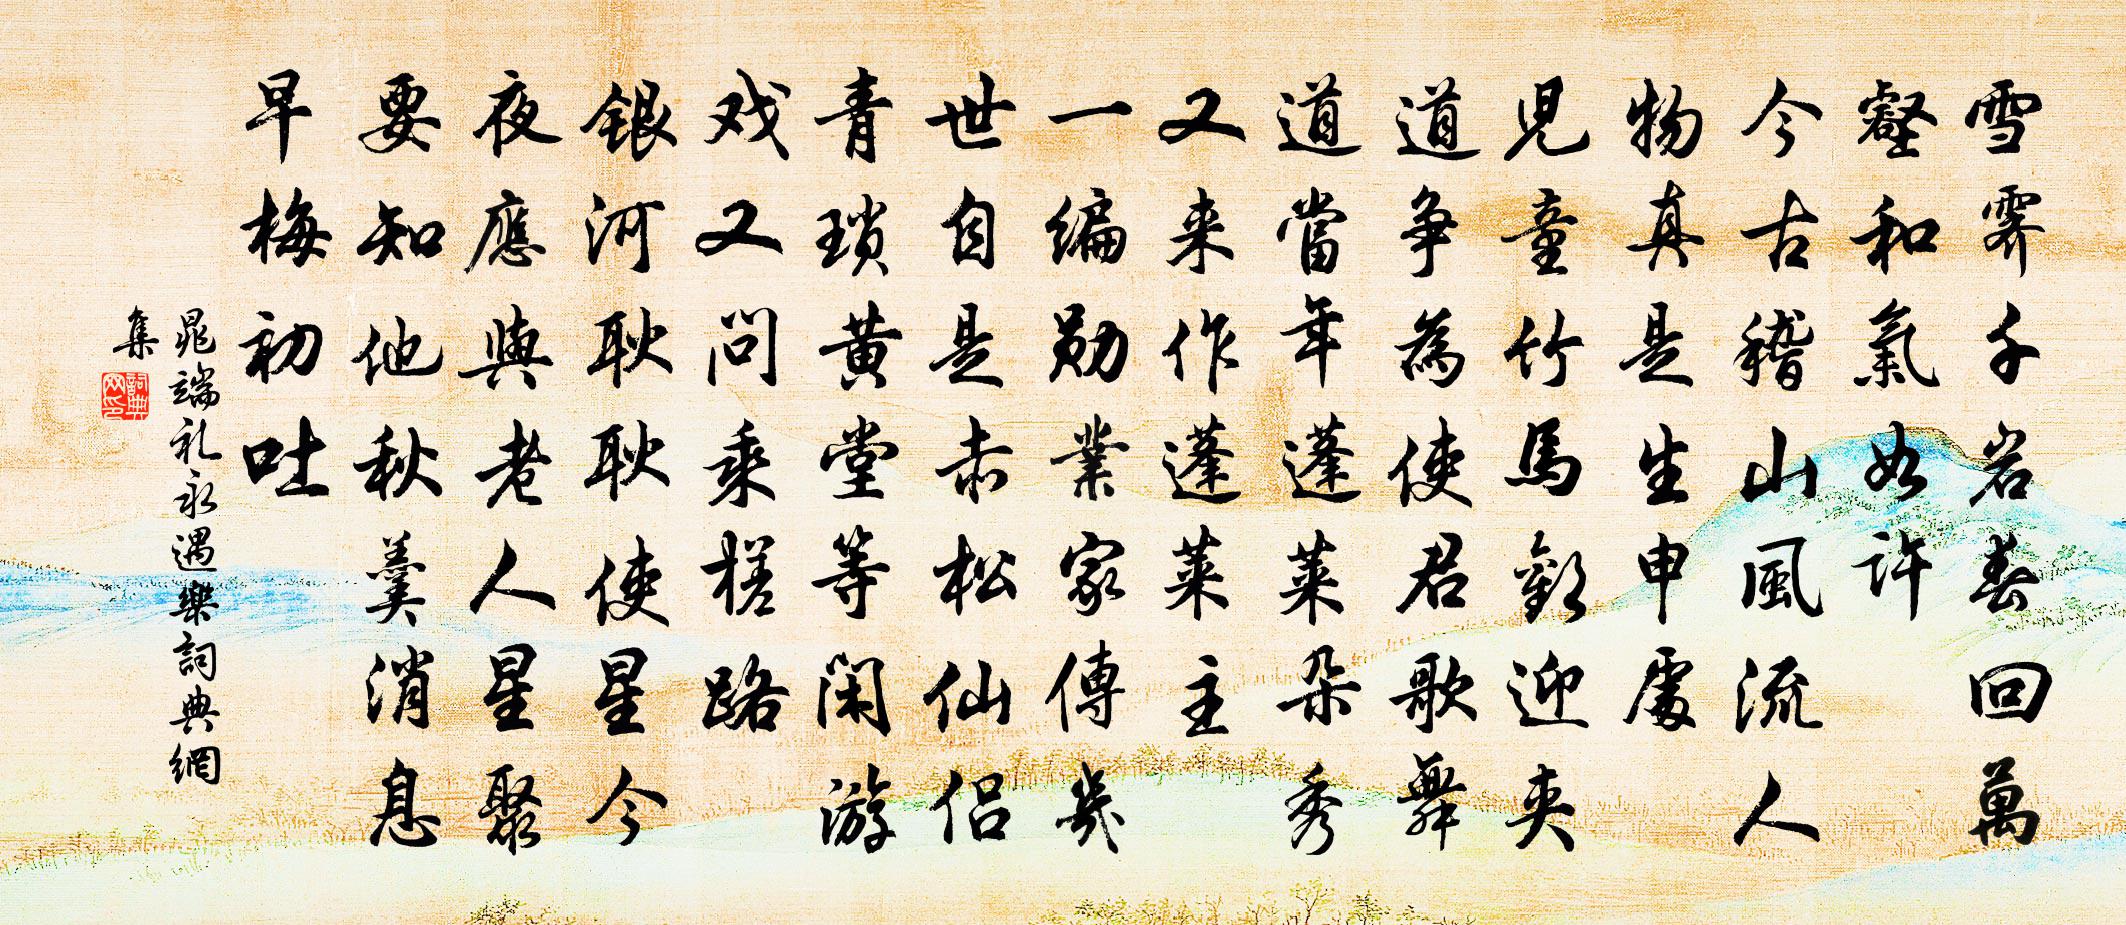 雪霽千岩春回萬
壑和氣如許
今古稽山風流人
物真是生申處
兒童竹馬歡迎夾
道爭為使君歌舞
道當年蓬萊朵秀
又来作蓬萊主
一編勋業家傳幾
世自是赤松仙侣
青瑣黄堂等閑游
戏又問乘槎路
銀河耿耿使星今
夜應與老人星聚
要知他秋羹消息
早梅初吐
晁端礼永遇樂詞典網
集
詞典網印